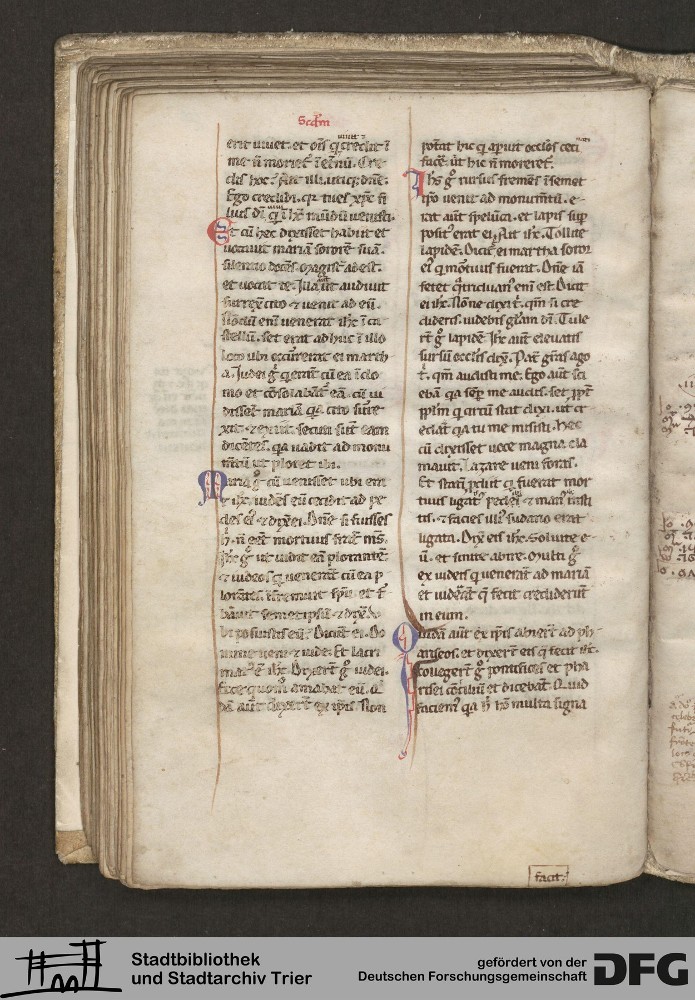 Scd̄m
erit uiuet. et om̄s q̄ credit ī
me n̄ moriet᷑ ī et̄nū. Cre
dis hoc? Ait illi. utiq; dn̄e.
Ego credidi. qr tu es xp̄c fi
lius dī q̄ ī hc̄ mūdū uenisti.
Et cū hec dixisset habiit et
uocauit mariā sororē suā.
silentio docēs. magist̄ adest.
et uocat te. Illa ut audiuit
surrexit cito ⁊ uenit ad eū.
Nōdū enī uenerat ih̄c ī ca
stellū. set erat adhuc ī illo
loco ubi occurrerat ei marth
a. Iudei ḡ q̄ erant cū ea ī do
mo et cōsolabant᷑ eā. cū ui
dissent mariā qa cito surre
xit ⁊ exiit. secuti sūt eam
dicētes. qa uadit ad monu
mtū ut ploret ibi.
Maria ḡ cū uenisset ubi erat
ih̄c. uidēs eū cecidit ad pe
des ei᷒ ⁊ dixit ei. Dn̄e si fuisses
h̄. n̄ eēt mortuus frat̄ m̄s.
ih̄c ḡ ut uidit eā plorantē.
⁊ iudeos q̄ uenerāt cū ea p
lorantes. īfremuit sp̄u et t᷑
bauit semetipsū ⁊ dixit. V
bi posuistis eū? Dicūt ei. Do
mine ueni ⁊ uide. Et lacri
mat᷒ ē ih̄c. Dixerūt ḡ iudei.
Ecce quom̄ amabat eū. Q̇
dā aūt dixerūt ex ip̄is. Non
potat hic q̄ apuit oculos ceci
facē. ut hic n̄ moreret᷑.
Ih̄s ḡ rursus fremēs ī semet
ip̄o uenit ad monumtū. e
rat aūt spelūca. et lapis sup
posit᷒ erat ei. Ait ih̄c. Tollite
lapidē. Dicit ei martha soror
ei᷒ q̄ mortuus fuerat. Dn̄e iā
fetet q̄triduan᷒ enī est. Dicit
ei ih̄c. Nōne dixi t᷑. qm̄ si cre
dideris. uidebis glam dī. Tule
rt̄ ḡ lapidē. Ih̄c aūt eleuatis
sursū oculis dixit. Pat̄ gr̄as ago
t᷑. qm̄ audisti me. Ego aūt sci
ebā qa sēp me audis. set pp̄t
pplm̄ q̄ cirtū stat dixi. ut cr
edāt qa tu me misisti. Hec
cū dixisset uoce magna cla
mauit. Lazare ueni foras.
Et statī pdiit q̄ fuerat mor
tuus ligat᷒ pedes ⁊ man᷒ īsti
tis. ⁊ facies illi᷒ sudario erat
ligata. Dix̄ eis ih̄c. Soluite e
ū. et sinite abire. Multi ḡ
ex iudeis q̄ uenerāt ad mariā
et uiderāt q̄ fecit crediderūt
in eum.
Quidā aūt ex ip̄is abierūt ad ph
ariseos. et dixerūt eis q̄ fecit ih̄c.
Collegerūt ḡ pontifices et pha
risei cōciliū et dicebāt. Quid
facim᷒ qa h̄ hō multa signa
facit.
Stadtbibliothek
und Stadtarchiv Trier
gefördert von der
Deutschen Forschungsgemeinschaft
DFG